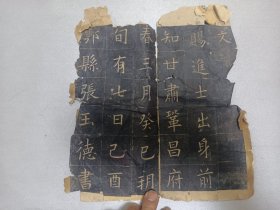 文
賜進士出身前
知甘肅鞏昌府
春三月癸巳玥
旬有七日己酉
鄠縣張王德書